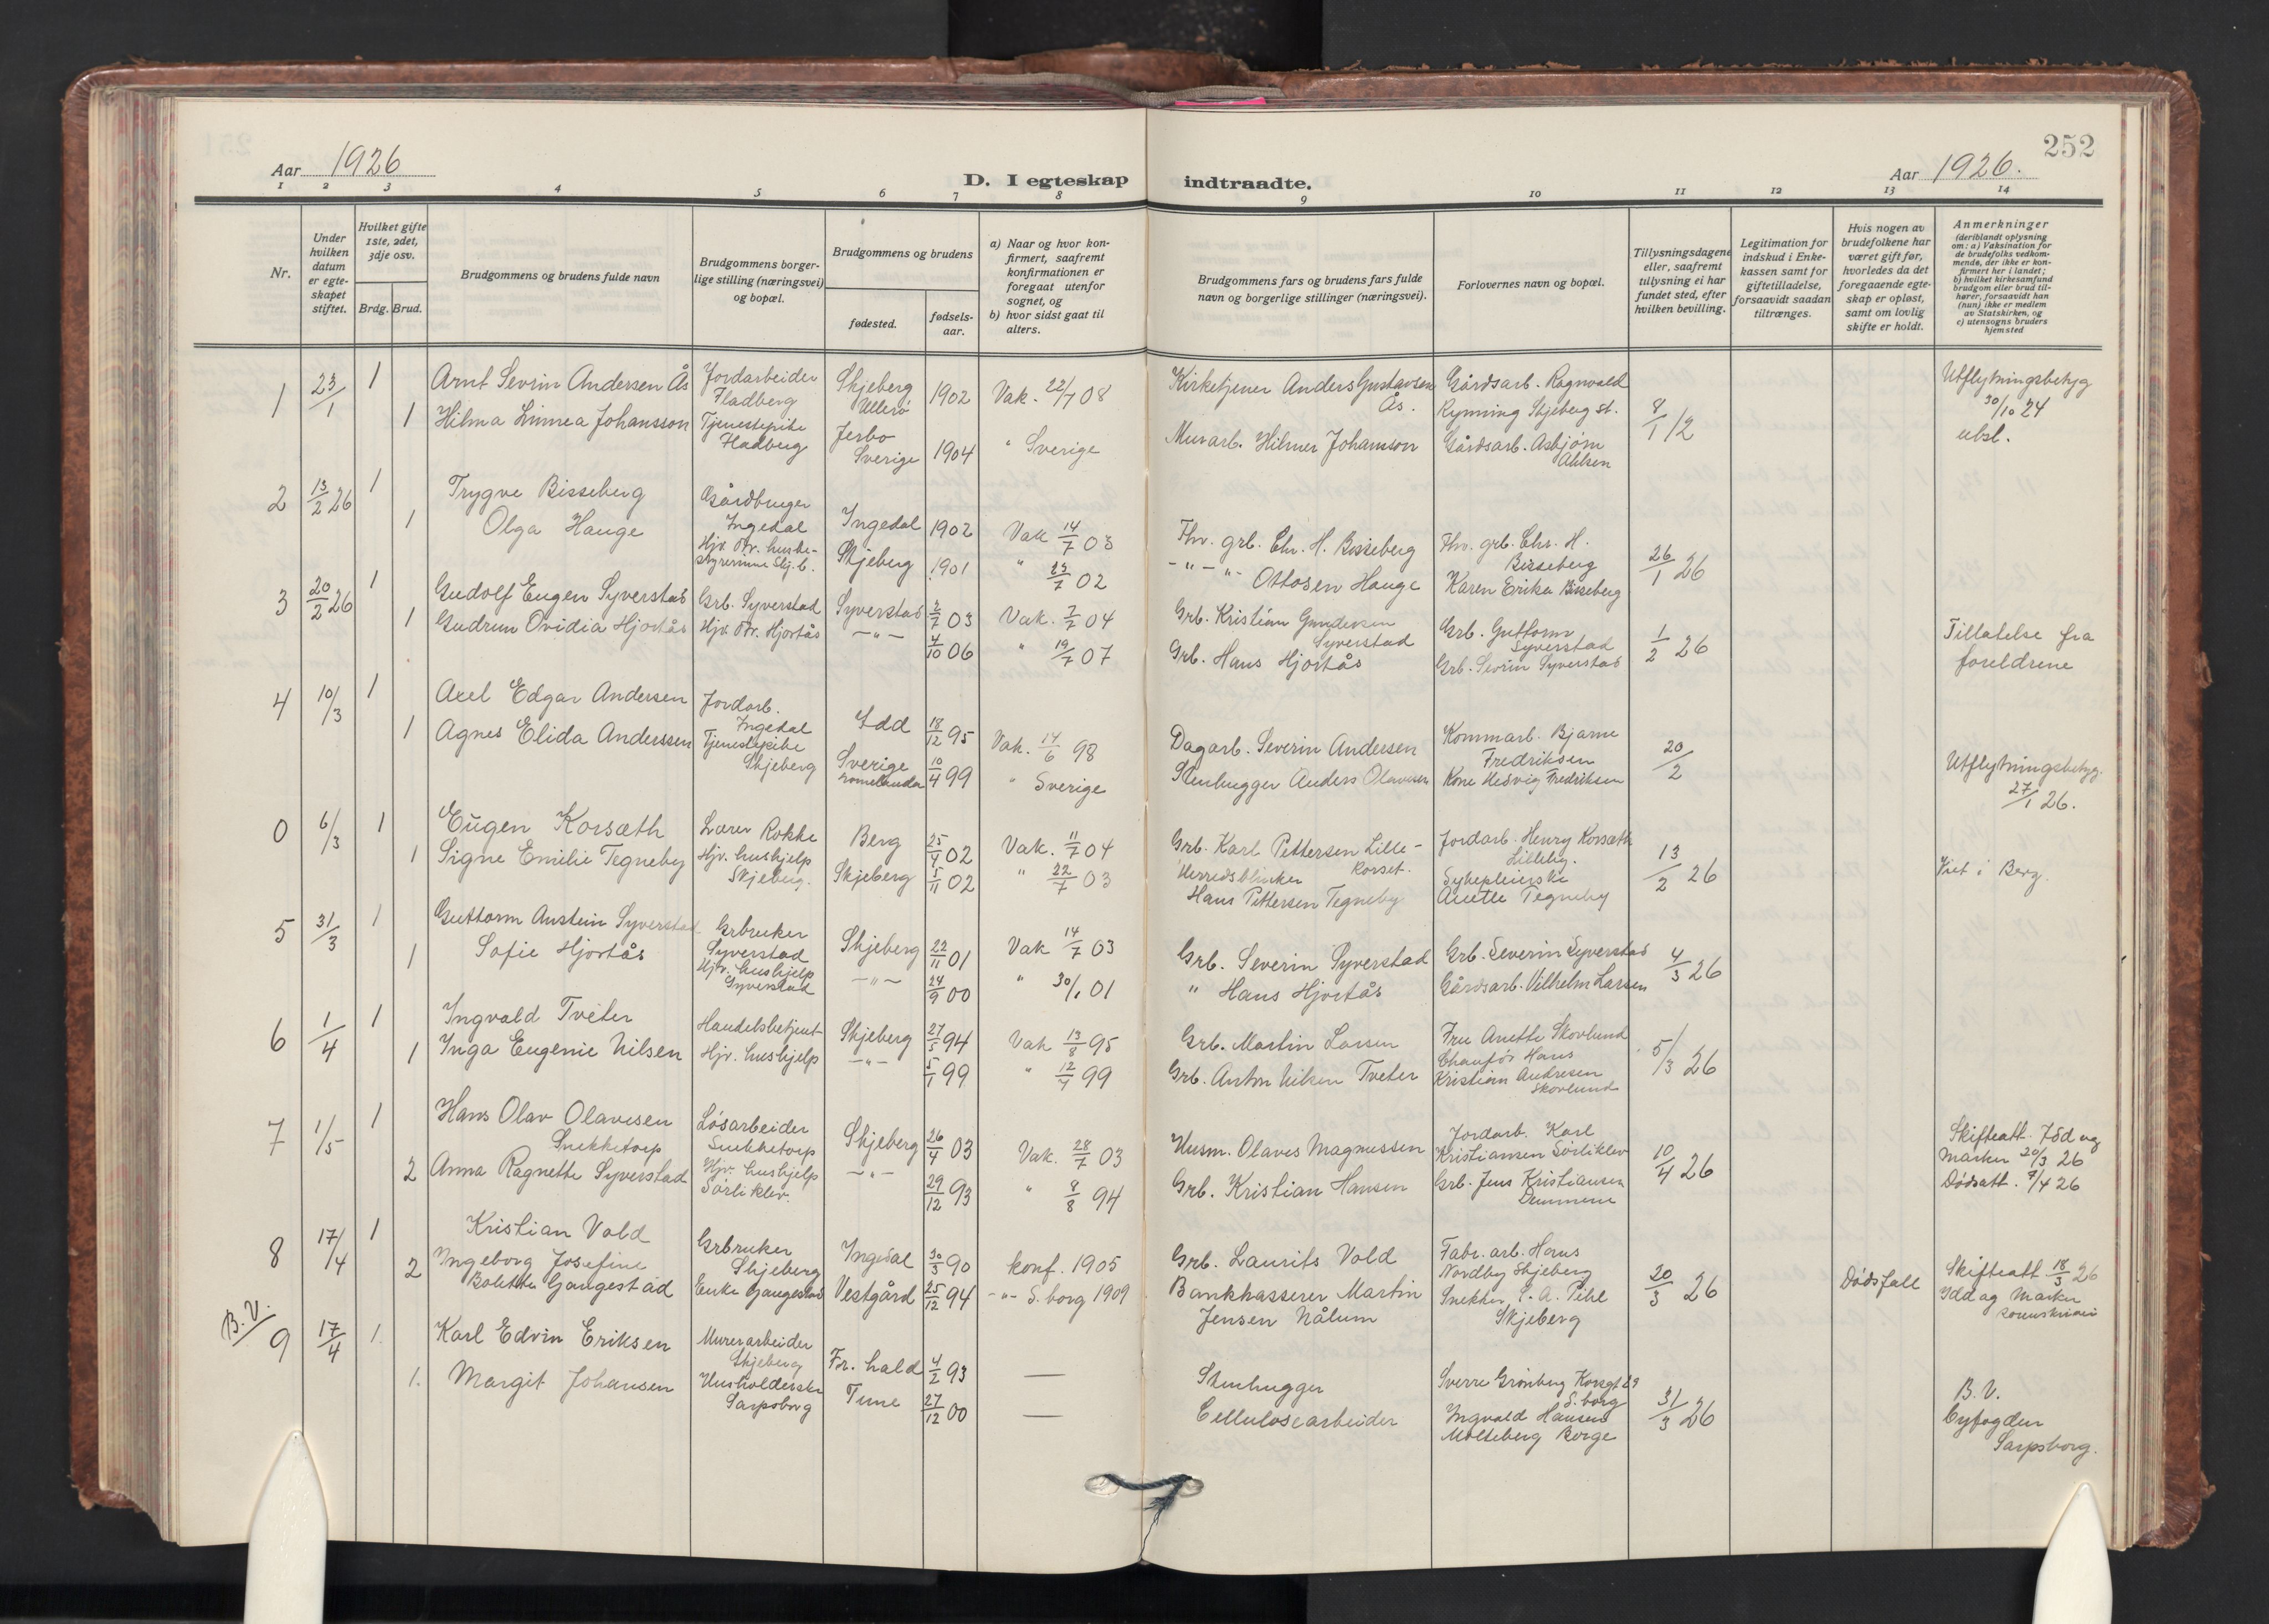 252
Aar 1926
D. I egteskap indtraadte.
Aar 1926.
1 2 3 4 5 6 7 8 9 10 11 12 13 14
Nr.
Under hvilken datum er egteskapet stiftet.
Hvilket gifte 1ste, 2det, 3dje osv.
Brdg. Brud.
Brudgommens og brudens fulde navn
Brudgommens borgerlige stilling (næringsvei) og bopæl.
Brudgommens og brudens
fødested.
fødselsaar.
a) Naar og hvor konfirmert, saafremt konfirmationen er foregaat utenfor sognet, og
b) hvor sidst gaat til alters.
Brudgommens fars og brudens fars fulde navn og borgerlige stillinger (næringsvei).
Forlovernes navn og bopæl.
Tillysningsdagene eller, saafremt tillysning ei har fundet sted, efter hvilken bevilling.
Legitimation for indskud i Enkekassen samt for giftetilladelse, forsaavidt saadan tiltrænges.
Hvis nogen av brudefolkene har været gift før, hvorledes da det foregaaende egteskap er opløst, samt om lovlig skifte er holdt.
Anmerkninger (deriblandt oplysning om: a) Vaksination for de brudefolks vedkommende, der ikke er konfirmert her i landet; b) hvilket kirkesamfund brudgom eller brud tilhører, forsaavidt han (hun) ikke er medlem av Statskirken, og c) utensogns bruders hjemsted
1 23/1 1 Arnt Sevrin Andersen Ås Jordarbeider Fladberg Skjeberg Ullerö 1902 Vak. 22/7 08 Kirketjener Anders Gustavsen Ås. Gårdsarb. Ragnvald Rynning Skjeberg st. 8/1 1/2 Utflytningsbetyg 30/10 24 ubsl.
1 Hilma Linnea Johansson Tjenestepike Fladberg Jerbo Sverige 1904 " Sverige Murarb. Hilmer Johansson Gårdsarb. Asbjørn Ahlsen
2 13/2 26 1 Trygve Bisseberg Gårdbruger Ingedal Ingedal 1902 Vak 14/7 03 Fhv. grb. Chr. H. Bisseberg Fhv. grb. Chr. H. Bisseberg 26/1 26
1 Olga Hauge Hjv. Dtr. husbestyrerinne Skj.b. Skjeberg 1901 " 23/7 02 -"-"- Ottosen Hauge Karen Erika Bisseberg
3 20/2 26 1 Gudolf Eugen Syverstad Grb. Syverstad Syverstad 2/7 03 Vak. 7/7 04 Grb. Kristian Gundersen Syverstad Grb. Guttorm Syverstad 1/2 26 Tillatelse fra foreldrene
1 Gudrun Ovidia Hjortås Hjv. Dtr. Hjortås -"- 4/10 06 " 19/7 07 Grb. Hans Hjortås Grb. Sevrin Syverstad
4 10/3 1 Axel Edgar Andersen Jordarb. Ingedal Idd 18/12 95 Vak. 14/6 98 Dagarb. Severin Andersen Kommarb. Bjarne Fredriksen 20/2 Utflytningsbetyg. 27/1 26.
1 Agnes Elida Anderssen Tjenestepike Skjeberg Sverige 10/4 99 " Sverige Stenhugger Anders Olavesen Kone Hedvig Fredriksen
0 6/3 1 Eugen Korsæth Lærer Rokke Berg 25/4 02 Vak. 11/7 04 Grb. Karl Pettersen Lille-Korset. Jordarb. Henry Korsæth Lilleby. 13/2 26 Viet i Berg.
1 Signe Emilie Tegneby Hjv. hushjelp Skjeberg. Skjeberg 5/11 02 " 22/7 03 Herredsblinker Hans Pettersen Tegneby Sykepleierske Anette Tegneby
5 31/3 1 Guttorm Anstein Syverstad Grbruker Syverstad Skjeberg 22/11 01 Vak 14/7 03 Grb. Severin Syverstad Grb. Severin Syverstad 4/3 26
1 Sofie Hjortås Hjv. hushjelp Syverstad -"- 24/9 00 " 30/1 01 " Hans Hjortås Gårdsarb. Vilhelm Larsen
6 1/4 1 Ingvald Tveter Handelsbetjent Skjeberg 27/5 94 Vak 13/8 95 Grb. Martin Larsen Fru Anette Skovlund 5/3 26
1 Inga Eugenie Nilsen Hjv. hushjelp -"- 5/1 99 " 12/7 99 Grb. Anton Nilsen Tveter Chaufør Hans Kristian Andresen Skovlund
7 1/5 1 Hans Olav Olavesen Snekketorp Løsarbeider Snekketorp Skjeberg 26/4 03 Vak. 28/7 03 Husm. Olaves Magnussen Jordarb. Karl Kristiansen Sørliklev 10/4 26 Skifteatt. Idd og Marker 20/3 26 Dødsatt. 9/4 26
2 Anna Ragnette Syverstad Hjv. hushjelp Sørliklev. -"- 29/12 93 " 8/8 94 Grb. Kristian Hansen Grb. Jens Kristiansen
8 17/4 1 Kristian Vold Grbruker Skjeberg Ingedal 30/3 90 konf. 1905 Grb. Laurits Vold Fabr. arb. Hans Nordby Skjeberg 20/3 26 Dødsfall Skifteatt 18/3 26 Idd og Marker sorenskriveri
2 Ingeborg Josefine Bolette Gaugestad Enke Gaugestad Vestgård 25/12 94 -"- S.borg 1909 Bankkasserer Martin Jensen Nålum Snekker C. A. Pihl Skjeberg
B.V. 9 17/4 1. Karl Edvin Eriksen Murerarbeider Skjeberg Fr. hald 4/2 93 — Stenhugger Sverre Grönberg Korsgt 29 S.borg 31/3 26 B.V. Byfogden Sarpsborg.
1. Margit Johansen Husholderske Sarpsborg Tune 27/12 00 — Cellulosearbeider Ingvald Hansen Molteberg Borge